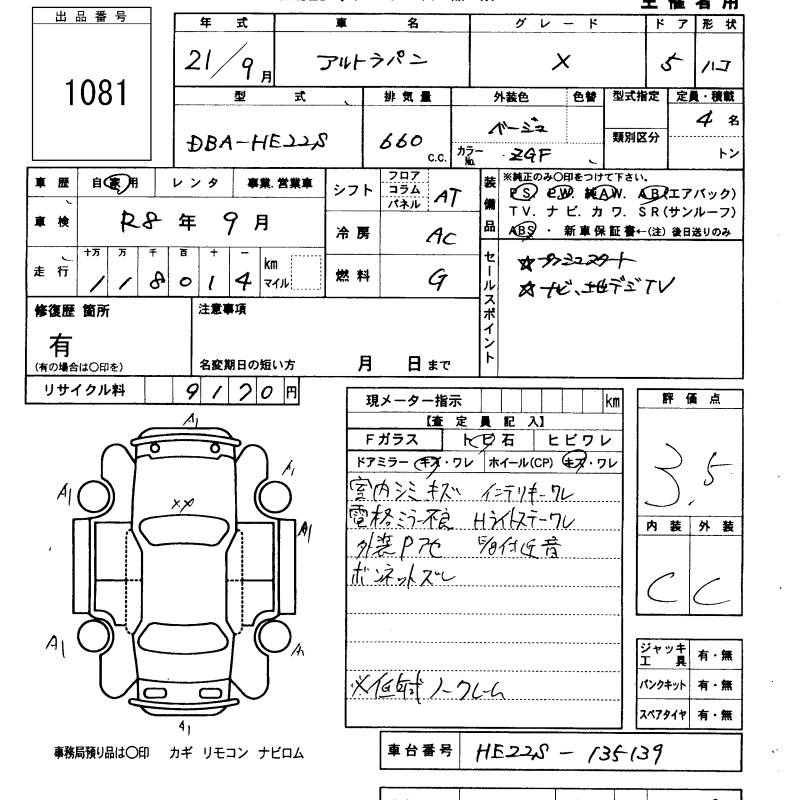 出品番号
1081
年式 車名 グレード ドア 形状
21/9月 アルトラパン X 5 ハコ
型式 排気量 外装色 色替 型式指定 定員・積載
DBA-HE22S 660 C.C. ベージュ 4名
カラーNo. ZGF 類別区分 トン
車歴 自家用 レンタ 事業.営業車
車検 R8年9月
走行 十万 万 千 百 十 一
118014 km マイル
シフト フロア コラム パネル AT
冷房 AC
燃料 G
装備品
※純正のみ○印をつけて下さい。
PS. PW. 純AW. AB(エアバック)
TV. ナビ. カワ. SR(サンルーフ)
ABS・新車保証書←(注)後日送りのみ
セールスポイント
☆プッシュスタート
☆ナビ、地デジTV
修復歴 箇所
有
(有の場合は○印を)
注意事項
名変期日の短い方 月 日まで
リサイクル料 9170円
現メーター指示 km
【査定員記入】
Fガラス トビ石 ヒビワレ
ドアミラー キズ・ワレ ホイール(CP) キズ・ワレ
室内シミキズ インテリキーワレ
電格ミラー不良 Hライトステークレ
外装Pアセ
ボンネットズレ
※低年式ノークレーム
評価点
3.5
内装 外装
C C
ジャッキ工具 有・無
パンクキット 有・無
スペアタイヤ 有・無
A1
A1 A1
XX
A1
A1 A1
A1
事務局預り品は○印 カギ リモコン ナビロム
車台番号 HE22S-135139